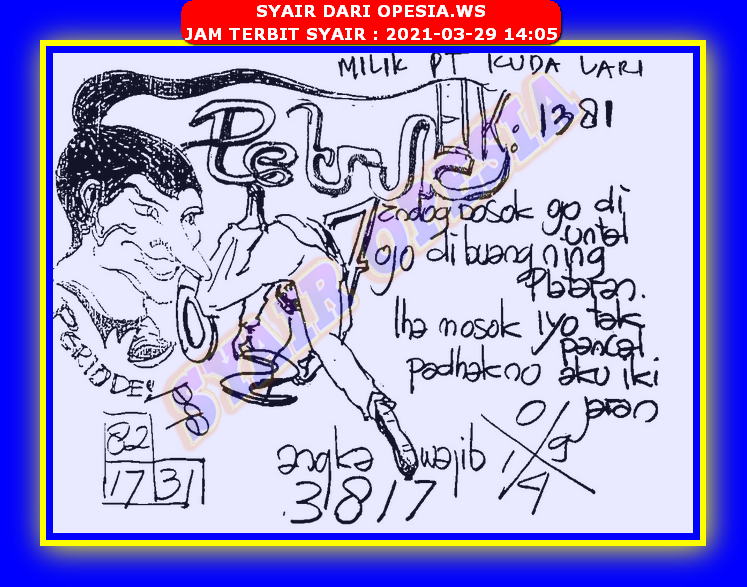 SYAIR DARI OPESIA.WS
JAM TERBIT SYAIR : 2021-03-29 14:05
MILIK PT KUDA LARI
Petruk: 1381
endog bosok go di
untal
ojo dibuang ning
Plataran.
lha mosok iyo tak
pancal
padhakno aku iki
jaran
SYAIR OPESIA
82
17 31
angka wajib
3817
0
1 9
4